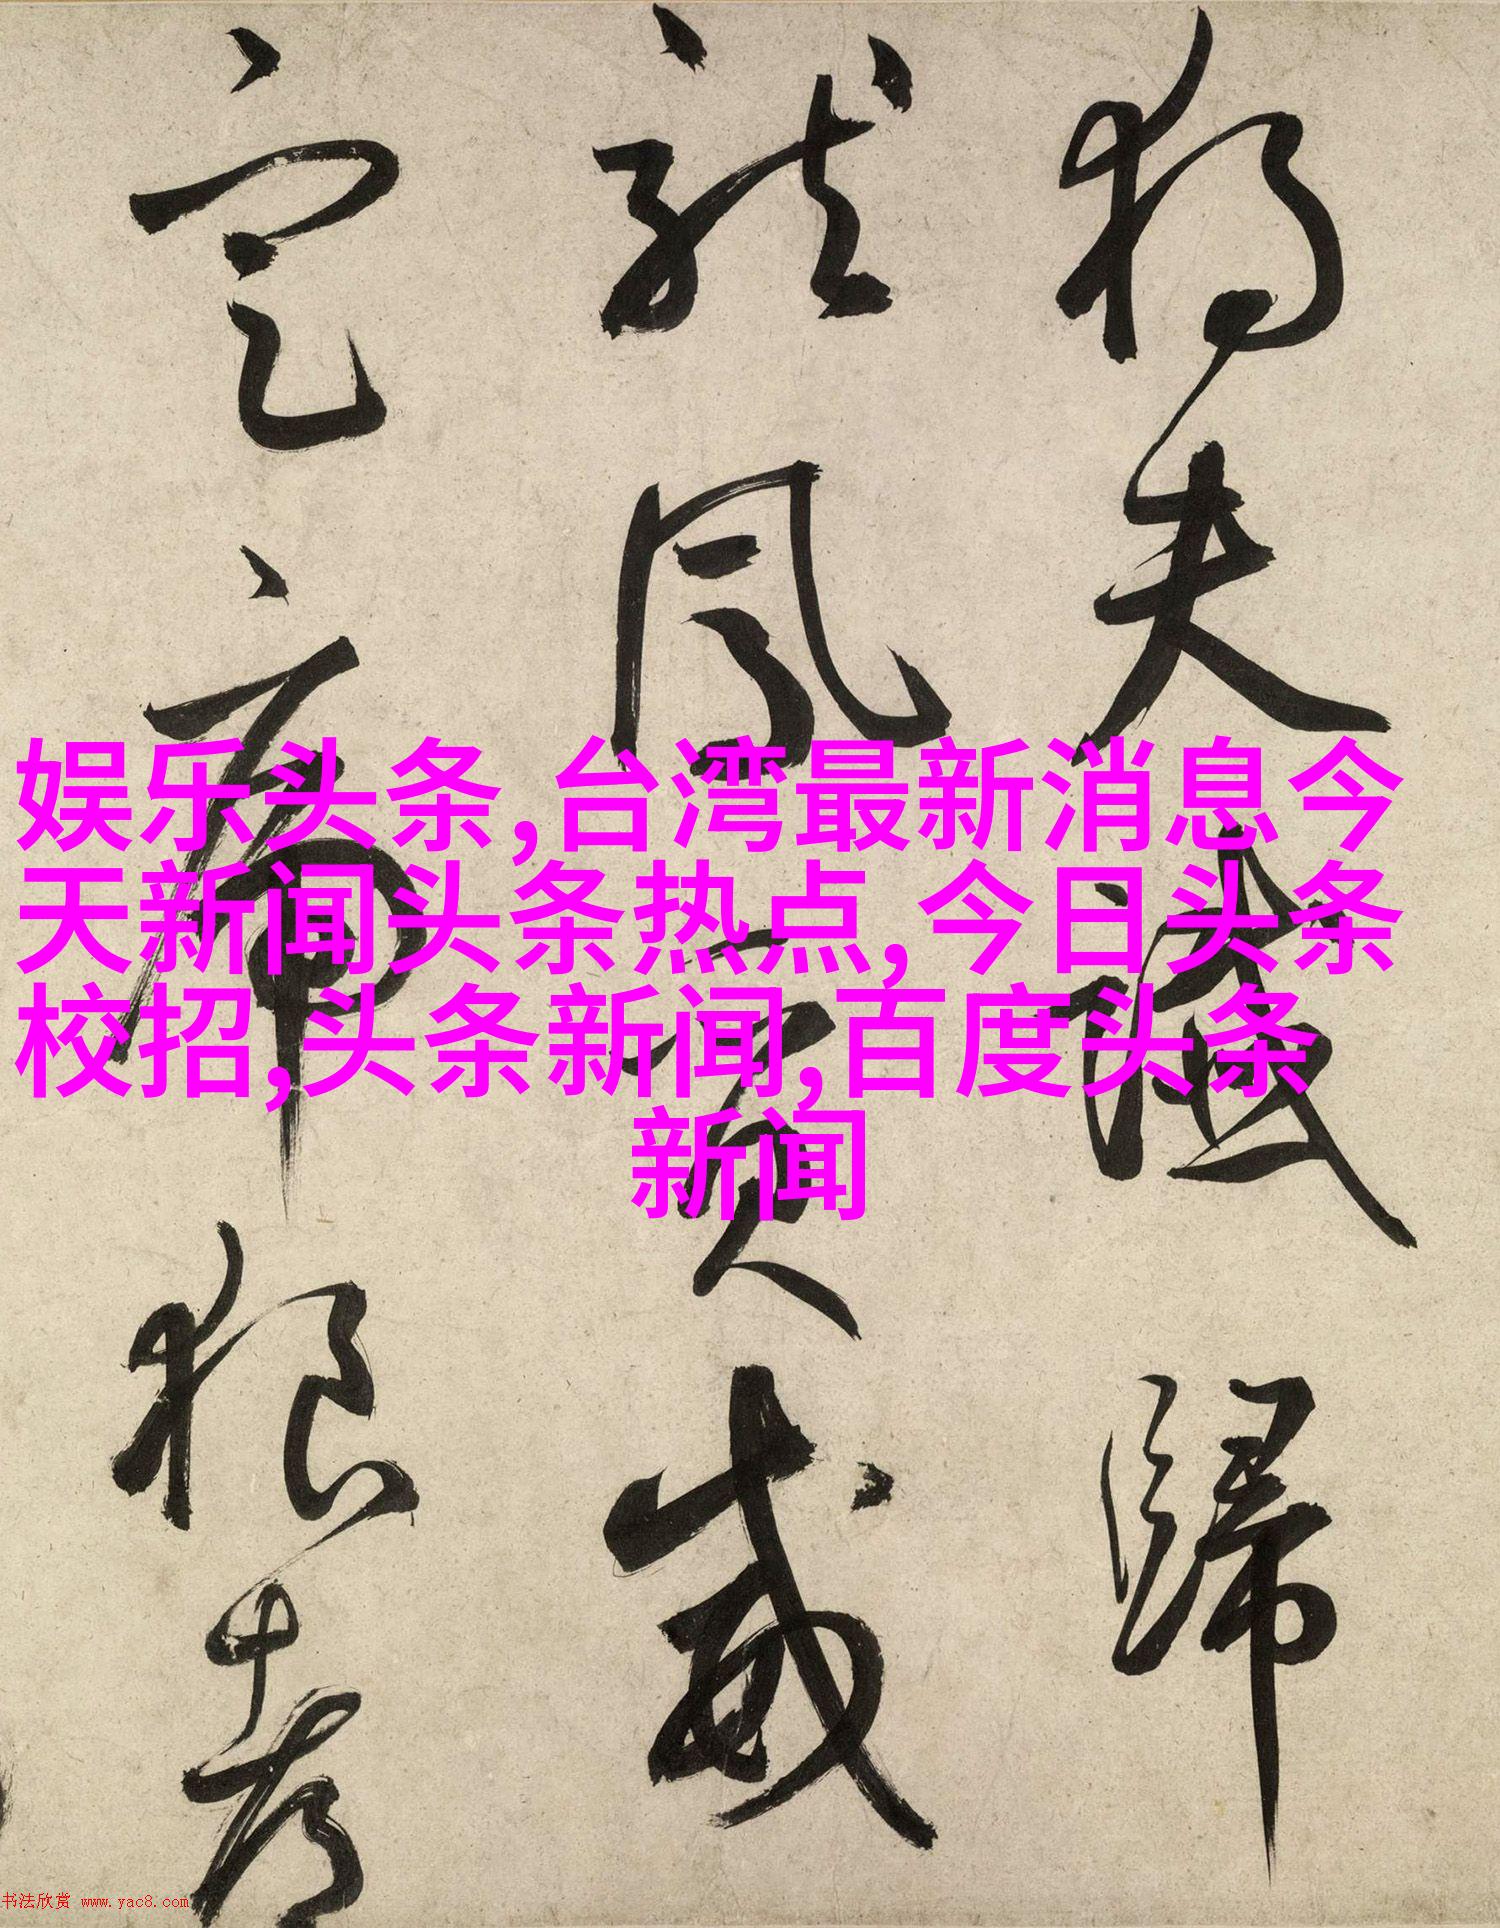 独夫滅歸
龍鳳實威
定庙狠考
娱乐头条,台湾最新消息今
天新闻头条热点,今日头条
校招,头条新闻,百度头条
新闻
书法欣赏 www.yac8.com